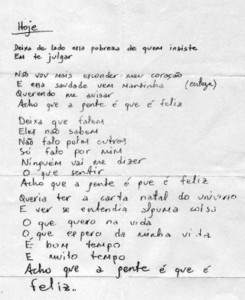 Hoje
Deixa de lado essa pobreza de quem insiste
Em te julgar
Não vou mais esconder meu coração
E essa saudade vem mansinha
Querendo me avisar
Acho que a gente é que é feliz
Deixa que falem
Eles não sabem
Não falo pelos outros
Só falo por mim
Ninguém vai me dizer
O que sentir
Acho que a gente é que é feliz
Queria ter a carta natal do universo
E ver se entendia alguma coisa
O que quero na vida
O que espero da minha vida
É bom tempo
E muito tempo
Acho que a gente é que é
feliz..